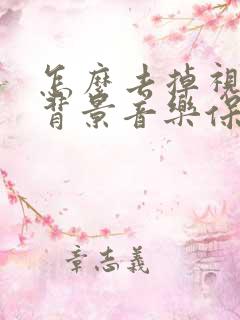 怎麼去掉視
背景音樂保
章志義